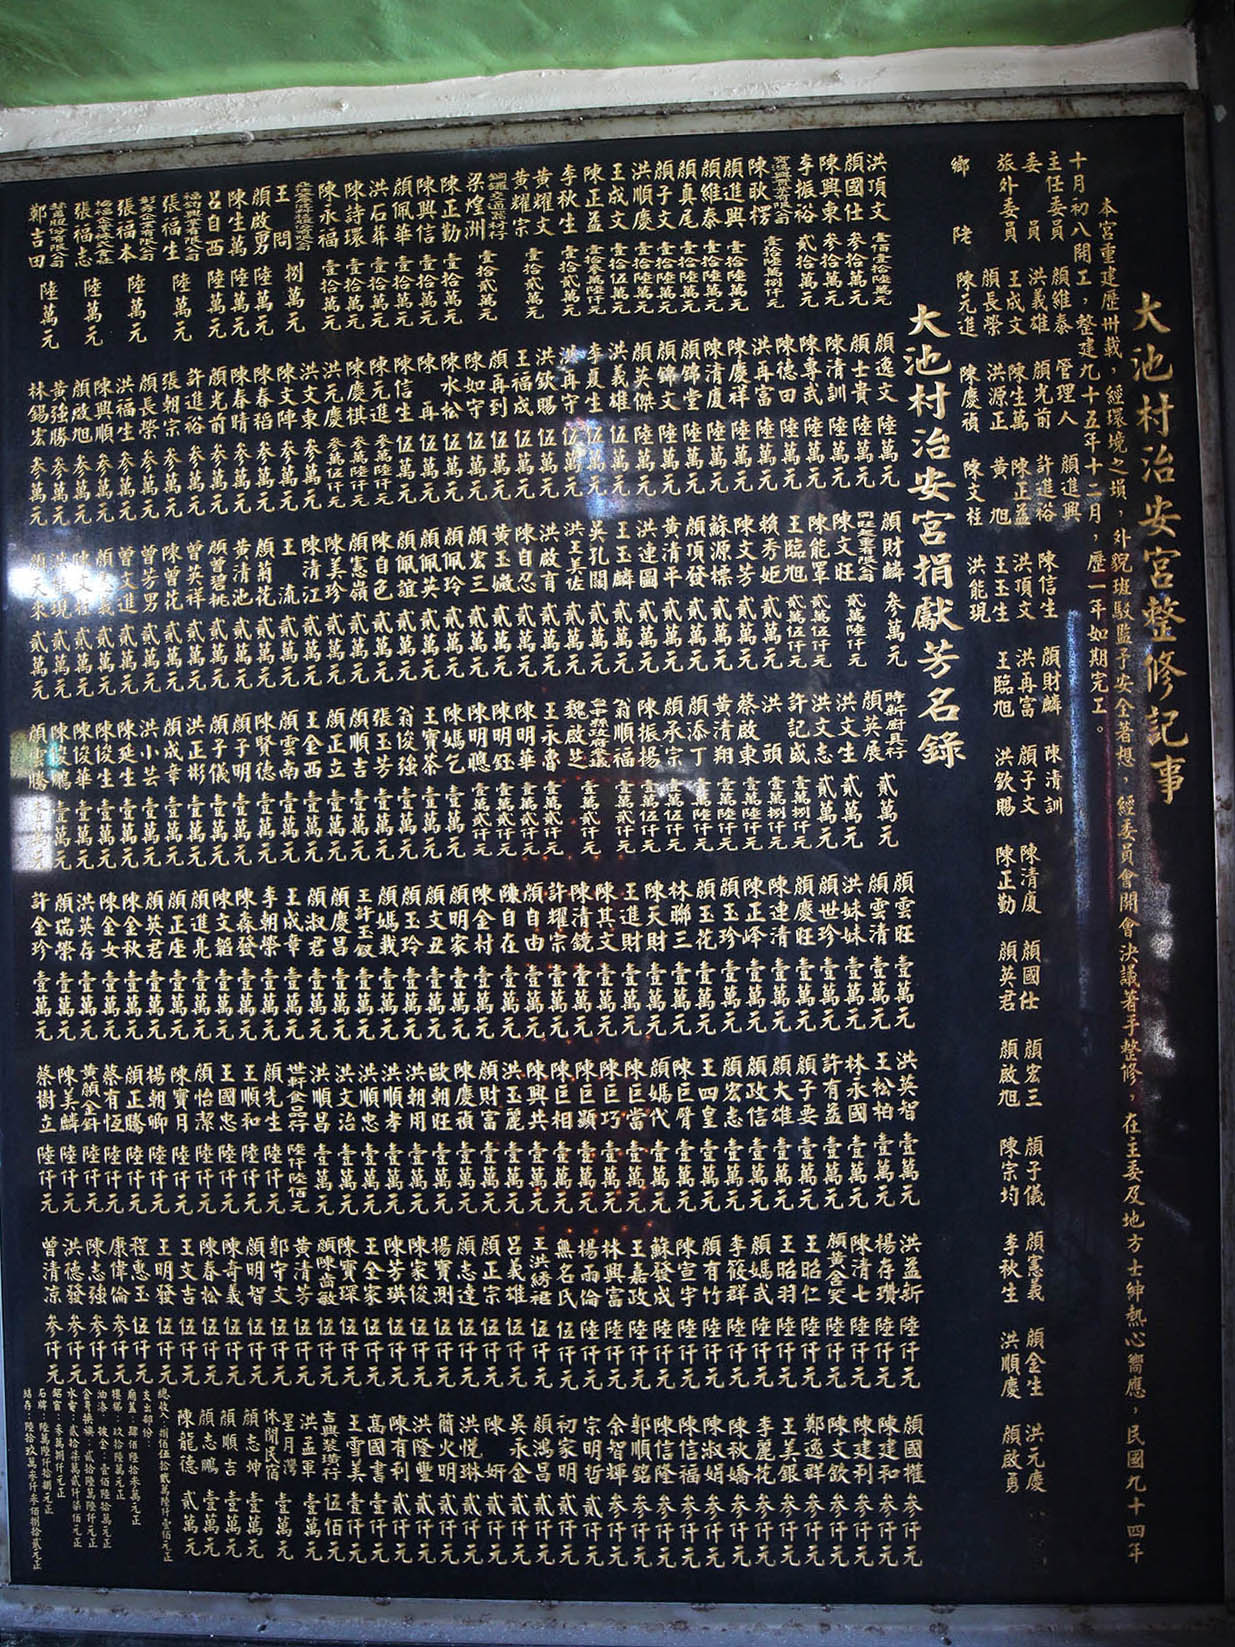 大池村治安宮整修記事
本宮重建歷卅載，經環境之塤，外貌班駁斑予安全著想，經委員會開會決議著手整修，在主委及地方士紳熱心嚮應，民國九十四年
十月初八開工，整建九十五年十二月，歷一年如期完工。
主任委員 顏維泰 管理人 顏進興
委員 洪義雄 顏光前 許進裕 陳信生 顏財麟 陳清訓
旅外委員 王成文 陳生萬 陳正益 洪頂文 洪再富 顏子文 陳清厦 顏國仕 顏宏三 顏子儀 顏憲義 顏金生 洪元慶
顏長榮 洪源正 黃旭 王玉生 王臨旭 洪欽賜 陳正勤 顏英君 顏啟旭 陳宗圴 李秋生 洪順慶 顏啟勇
鄉佬 陳元進 陳慶禎 陳文柱 洪能現
大池村治安宮捐獻芳名錄
洪頂文 壹佰壹拾陸萬元
顏國仕 參拾萬元
陳興東 參拾萬元
李振裕 貳拾萬元
陳歌楞
顏進興 壹拾陸萬元
顏維泰 壹拾陸萬元
顏真尾 壹拾陸萬元
顏子文 壹拾陸萬元
洪順慶 壹拾陸萬元
王成文
陳正益
李秋生
黃耀文 壹拾貳萬元
黃耀宗
梁煌洲 壹拾貳萬元
陳正勤 壹拾萬元
陳興信 壹拾萬元
顏佩華 壹拾萬元
洪石葬 壹拾萬元
陳詩環 壹拾萬元
陳永福 壹拾萬元
王問 捌萬元
顏啟男 陸萬元
陳生萬 陸萬元
呂自西 陸萬元
張福生 陸萬元
張福本 陸萬元
張福志 陸萬元
鄭吉田 陸萬元
顏逸文 陸萬元
顏士貴 陸萬元
陳清訓 陸萬元
陳專武 陸萬元
陳德田 陸萬元
洪再富 陸萬元
陳慶祥 陸萬元
陳清厦 陸萬元
顏錦堂 陸萬元
顏錦文 陸萬元
洪英傑 陸萬元
洪義雄 伍萬元
李夏生 伍萬元
洪再守 伍萬元
洪欽賜 伍萬元
王福成 伍萬元
顏再到 伍萬元
陳如守 伍萬元
陳水松 伍萬元
陳再 伍萬元
陳信生 伍萬元
陳元進 參萬陸仟元
陳慶祺 參萬陸仟元
洪元慶 參萬伍仟元
洪文東 參萬元
陳文陣 參萬元
陳春稻 參萬元
陳春晴 參萬元
顏光前 參萬元
許進裕 參萬元
張朝宗 參萬元
顏長榮 參萬元
洪福生 參萬元
陳興順 參萬元
顏啟旭 參萬元
黃強勝 參萬元
林錫宏 參萬元
顏財麟 參萬元
陳文旺 貳萬陸仟元
陳能軍 貳萬伍仟元
王臨旭 貳萬伍仟元
賴秀姬 貳萬元
陳文芳 貳萬元
蘇源標 貳萬元
顏頂發 貳萬元
黃清平 貳萬元
洪連圖 貳萬元
王玉麟 貳萬元
吳孔關 貳萬元
洪王美佐 貳萬元
洪啟育 貳萬元
陳自忍 貳萬元
黃玉嬍 貳萬元
顏宏三 貳萬元
顏佩玲 貳萬元
顏佩英 貳萬元
顏佩誼 貳萬元
陳自色 貳萬元
顏憲嶺 貳萬元
陳美珍 貳萬元
陳清江 貳萬元
王流 貳萬元
顏菊花 貳萬元
黃清池 貳萬元
顏碧桃 貳萬元
曾英祥 貳萬元
陳曾花 貳萬元
曾芳男 貳萬元
曾文進 貳萬元
顏天來 貳萬元
顏英展 貳萬元
洪文生 貳萬元
洪文志 貳萬元
許記盛 壹萬捌仟元
洪頭 壹萬捌仟元
蔡啟東 壹萬陸仟元
黃清翔 壹萬陸仟元
顏添丁 壹萬陸仟元
顏承宗 壹萬伍仟元
陳振揚 壹萬伍仟元
翁順福 壹萬貳仟元
魏啟芝 壹萬貳仟元
王永魯 壹萬貳仟元
陳明華 壹萬貳仟元
陳明鈺 壹萬貳仟元
陳明聰 壹萬貳仟元
陳媽乞 壹萬元
王寶茶 壹萬元
翁俊強 壹萬元
張玉芳 壹萬元
顏順吉 壹萬元
顏正立 壹萬元
王金西 壹萬元
顏雲南 壹萬元
陳賢德 壹萬元
顏子明 壹萬元
顏子儀 壹萬元
洪正彬 壹萬元
顏成章 壹萬元
洪小芸 壹萬元
陳延生 壹萬元
陳俊生 壹萬元
陳俊華 壹萬元
陳俊鵬 壹萬元
顏雲騰 壹萬元
顏雲旺 壹萬元
顏雲清 壹萬元
洪妹妹 壹萬元
顏世珍 壹萬元
顏慶旺 壹萬元
陳連清 壹萬元
陳正峄 壹萬元
顏玉珍 壹萬元
顏玉花 壹萬元
林聯三 壹萬元
陳天財 壹萬元
王進財 壹萬元
陳其文 壹萬元
陳清鏡 壹萬元
許耀宗 壹萬元
顏自由 壹萬元
陳自在 壹萬元
陳金村 壹萬元
顏明家 壹萬元
顏文丑 壹萬元
顏玉玲 壹萬元
顏媽載 壹萬元
王許玉釵 壹萬元
顏慶昌 壹萬元
顏淑君 壹萬元
王成章 壹萬元
李朝榮 壹萬元
陳森發 壹萬元
陳文韜 壹萬元
顏進亮 壹萬元
顏正座 壹萬元
顏英君 壹萬元
陳金秋 壹萬元
陳金女 壹萬元
洪英存 壹萬元
顏瑞榮 壹萬元
許金珍 壹萬元
洪英智 壹萬元
王松柏 壹萬元
林永國 壹萬元
許有益 壹萬元
顏子要 壹萬元
顏大雄 壹萬元
顏政信 壹萬元
顏宏志 壹萬元
王四皇 壹萬元
陳巨臂 壹萬元
顏媽代 壹萬元
陳巨當 壹萬元
陳巨巧 壹萬元
陳巨顯 壹萬元
陳巨相 壹萬元
陳興共 壹萬元
洪玉麗 壹萬元
顏財富 壹萬元
陳慶禎 壹萬元
歐朝旺 壹萬元
洪朝用 壹萬元
洪順孝 壹萬元
洪順忠 壹萬元
洪文治 壹萬元
洪順昌 壹萬元
世軒食品行 陸仟陸佰元
顏先生 陸仟元
王順和 陸仟元
王國忠 陸仟元
顏怡潔 陸仟元
陳寶月 陸仟元
楊朝卿 陸仟元
顏正騰 陸仟元
蔡有恆 陸仟元
黃顏金針 陸仟元
陳美麟 陸仟元
蔡樹立 陸仟元
洪益新 陸仟元
楊存瓚 陸仟元
陳清七 陸仟元
顏黃金笑 陸仟元
王昭仁 陸仟元
王昭羽 陸仟元
顏媽武 陸仟元
李筱群 陸仟元
顏有竹 陸仟元
陳宣宇 陸仟元
蘇發成 陸仟元
王嘉政 陸仟元
林興富 陸仟元
楊雨倫 陸仟元
無名氏 伍仟元
王洪綉袓 伍仟元
呂義雄 伍仟元
顏正宗 伍仟元
顏志達 伍仟元
楊寶測 伍仟元
陳家俊 伍仟元
陳芳瑛 伍仟元
王全家 伍仟元
陳寶琛 伍仟元
顏陳齒敏 伍仟元
黃清芳 伍仟元
郭守文 伍仟元
顏明智 伍仟元
陳奇義 伍仟元
陳春松 伍仟元
王文吉 伍仟元
王明發 伍仟元
程惠玉 伍仟元
康偉倫 參仟元
陳志強 參仟元
洪德發 參仟元
曾清凉 參仟元
顏國權 參仟元
陳建和 參仟元
陳建利 參仟元
陳文欽 參仟元
鄭逸群 參仟元
王美銀 參仟元
李麗花 參仟元
陳秋嬌 參仟元
陳淑娟 參仟元
陳信福 參仟元
陳信隆 參仟元
郭順銘 參仟元
余智輝 參仟元
宗明哲 貳仟元
初家明 貳仟元
顏鴻昌 貳仟元
吳永金 貳仟元
陳妍 貳仟元
洪悦琳 貳仟元
簡火明 貳仟元
洪隆豐 貳仟元
陳有利 貳仟元
高國書 貳仟元
王雪美 貳仟元
吉興裝璜行 伍佰元
洪孟軍 壹萬元
星月灣休閒民宿 壹萬元
顏志坤 壹萬元
顏順吉 壹萬元
顏志鵬 壹萬元
陳龍德 貳萬元
總收入：捌佰陸拾貳萬陸仟壹佰元正
支出部份：
廟蓋：肆佰陸拾參萬元正
樓梯：玖拾陸萬元正
油漆、彼金：壹佰陸拾萬元正
金爐換磚：貳拾陸萬陸仟元正
水電：貳拾柒萬貳仟柒佰元正
鋁窗：參萬捌仟元正
石牌：陸萬陸仟拾捌元正
結存：陸拾玖萬參仟參佰捌拾貳元正